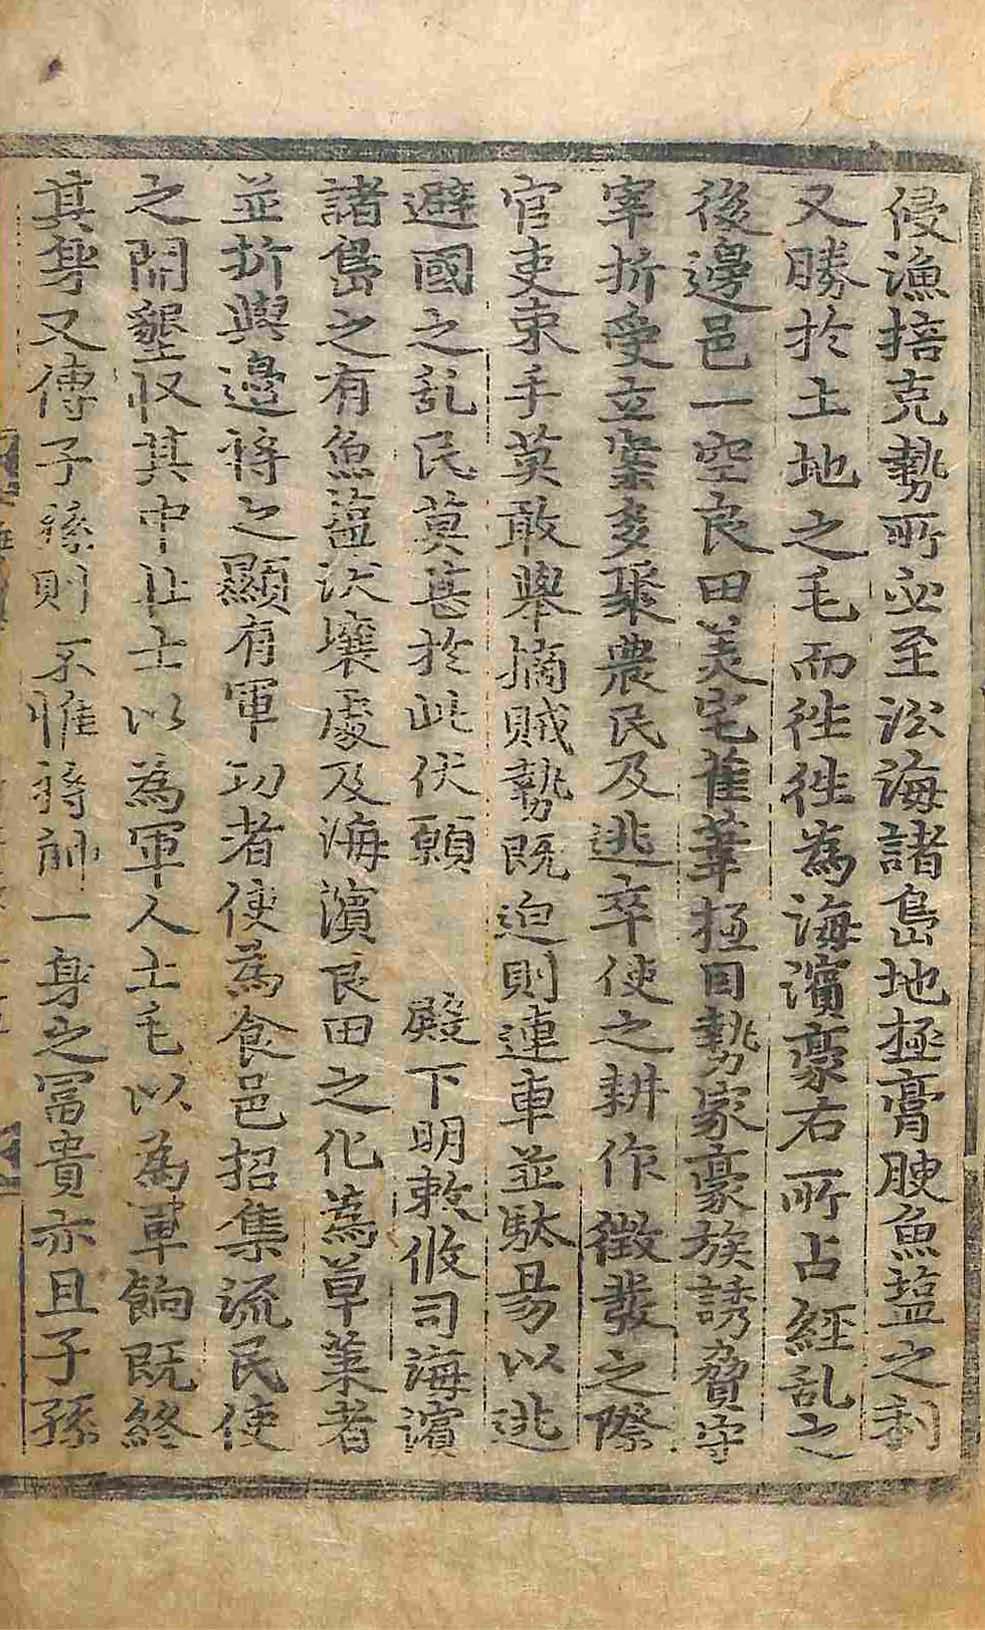 侵漁掊克勢所必至沿海諸島地極膏腴魚塩之利
又勝於土地之毛而徃徃爲海濱豪右所占經乱之
後邊邑一空良田美宅萑葦極目勢家豪族誘脅守
宰折受立案多聚農民及逃卒使之耕作徵發之際
官吏束手莫敢舉摘賊勢既迫則連車並駄易以逃
避國之乱民莫甚於此伏願 殿下明敕攸司海濱
諸島之有魚塩沃壤處及海濱良田之化爲草萊者
並折與邊将之顯有軍功者使爲食邑招集流民使
之開墾収其中壮士以為軍人土毛以為軍餉既終
其身又傳子孫則不惟將帥一身之冨貴亦且子孫